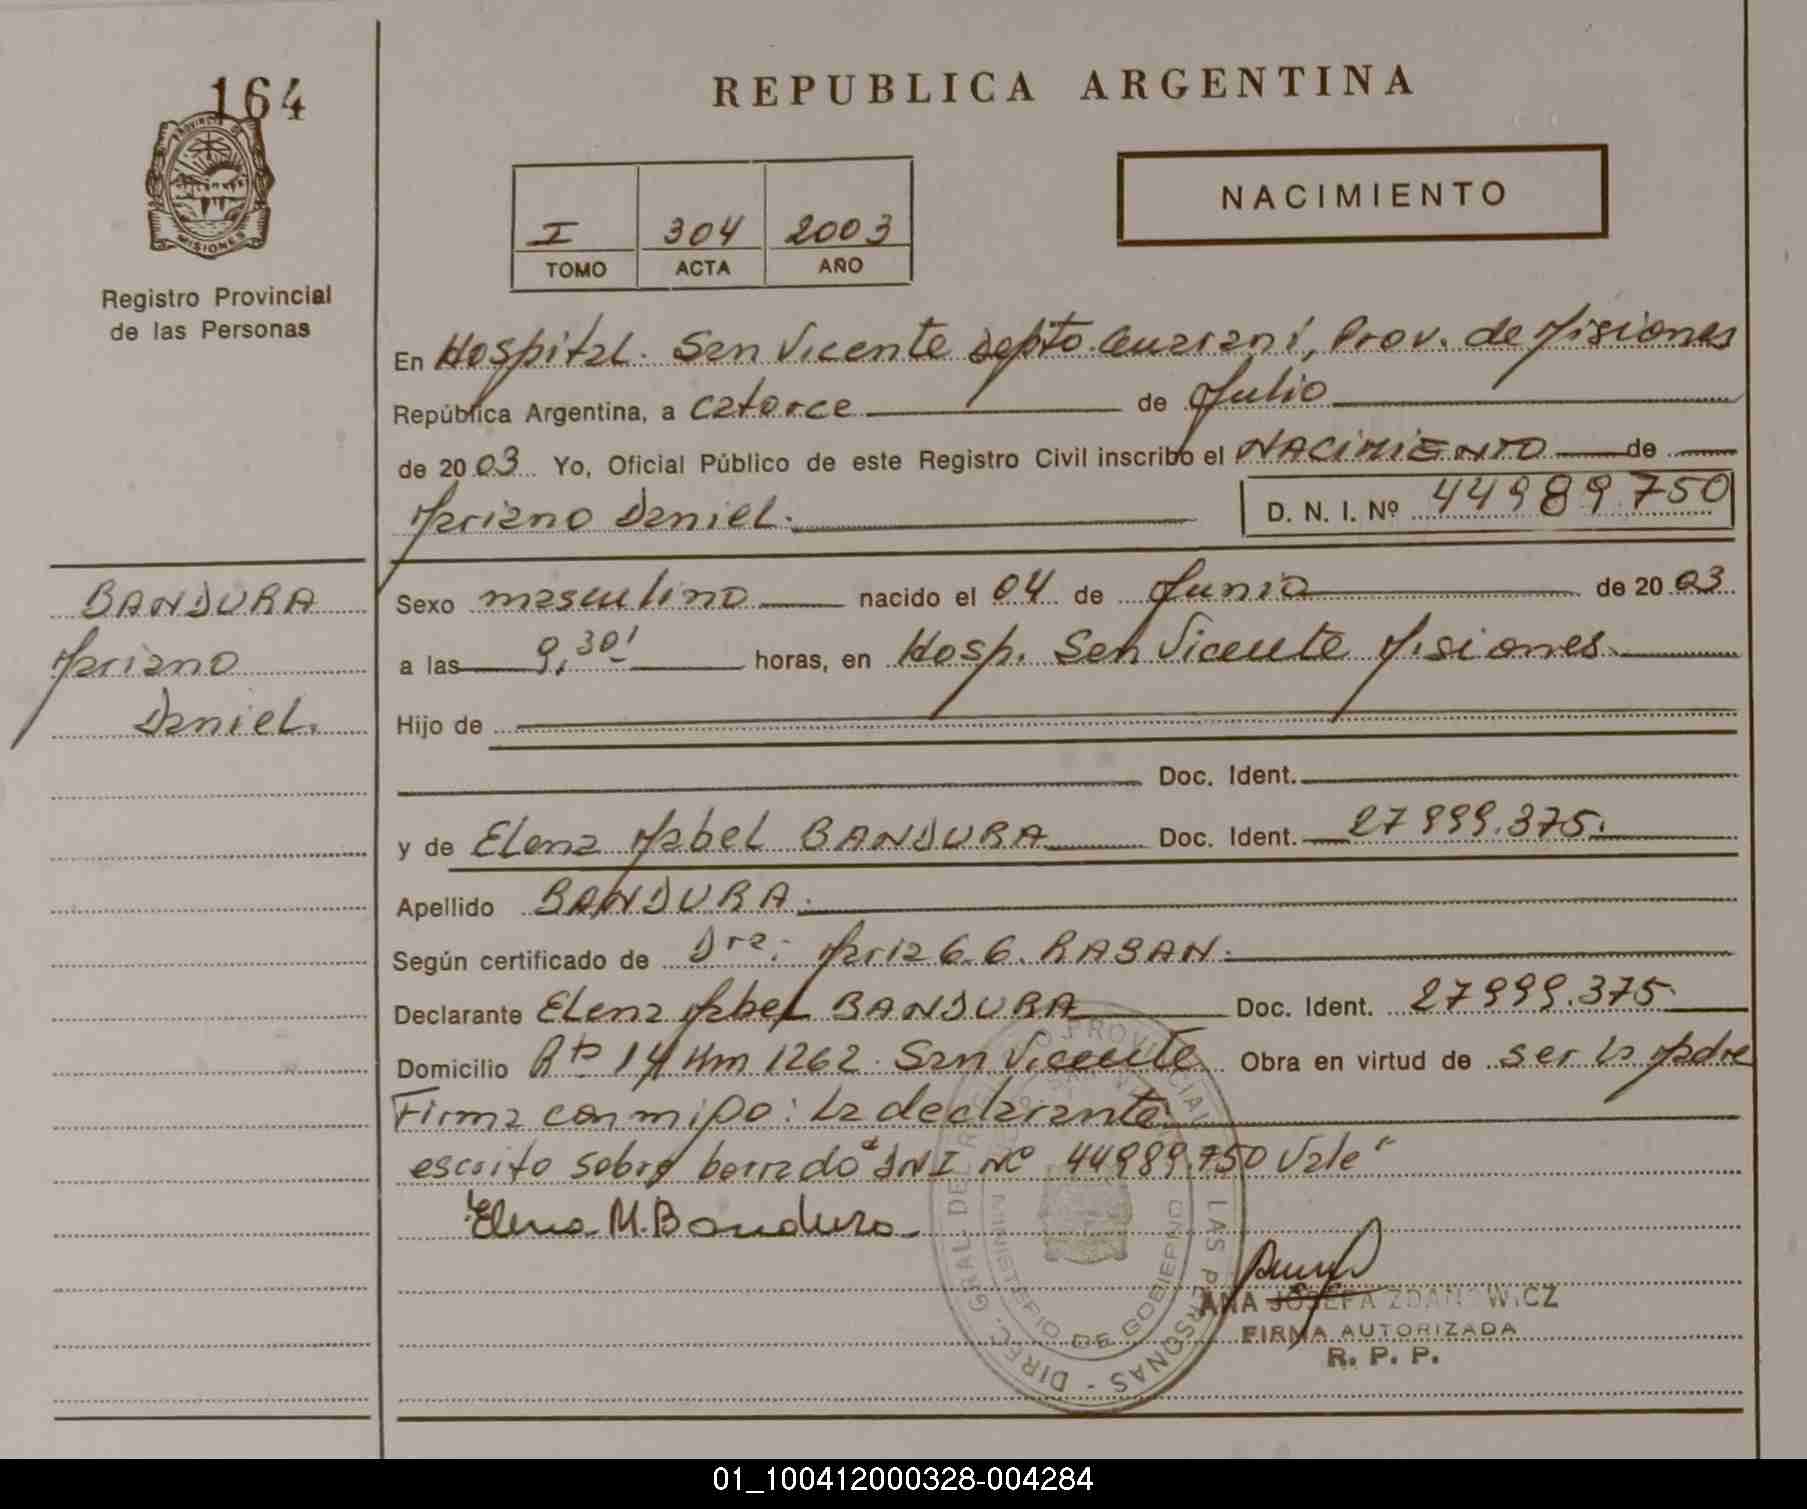 164
PROVINCIA DE
MISIONES
Registro Provincial
de las Personas
BANDURA
Mariano
Daniel.
REPUBLICA ARGENTINA
NACIMIENTO
I 304 2003
TOMO ACTA AÑO
En Hospital. San Vicente Depto. Guaraní, Prov. de Misiones
República Argentina, a catorce de Julio
de 2003 Yo, Oficial Público de este Registro Civil inscribo el NACIMIENTO de
Mariano Daniel. D. N. I. Nº 44989.750
Sexo masculino nacido el 04 de Junio de 2003
a las 9,30' horas, en Hosp. San Vicente Misiones.
Hijo de
Doc. Ident.
y de Elena Mabel BANDURA Doc. Ident. 27999.375.
Apellido BANDURA.
Según certificado de Dra. Maria G. G. Doc. Ident.
Declarante Elena Mabel BANDURA Doc. Ident. 27999.375.
Domicilio Rta 14 Km 1262. San Vicente Obra en virtud de ser la Madre
Firma conmigo: La declarante.
escrito sobre borrado "DNI Nº 44989.750 Vale"
Elena M. Bandura
DIREC. GRAL. DEL REGISTRO PROVINCIAL DE LAS PERSONAS -
MINISTERIO DE GOBIERNO
ANA JOSEFA ZDANOWICZ
FIRMA AUTORIZADA
R. P. P.
01_100412000328-004284